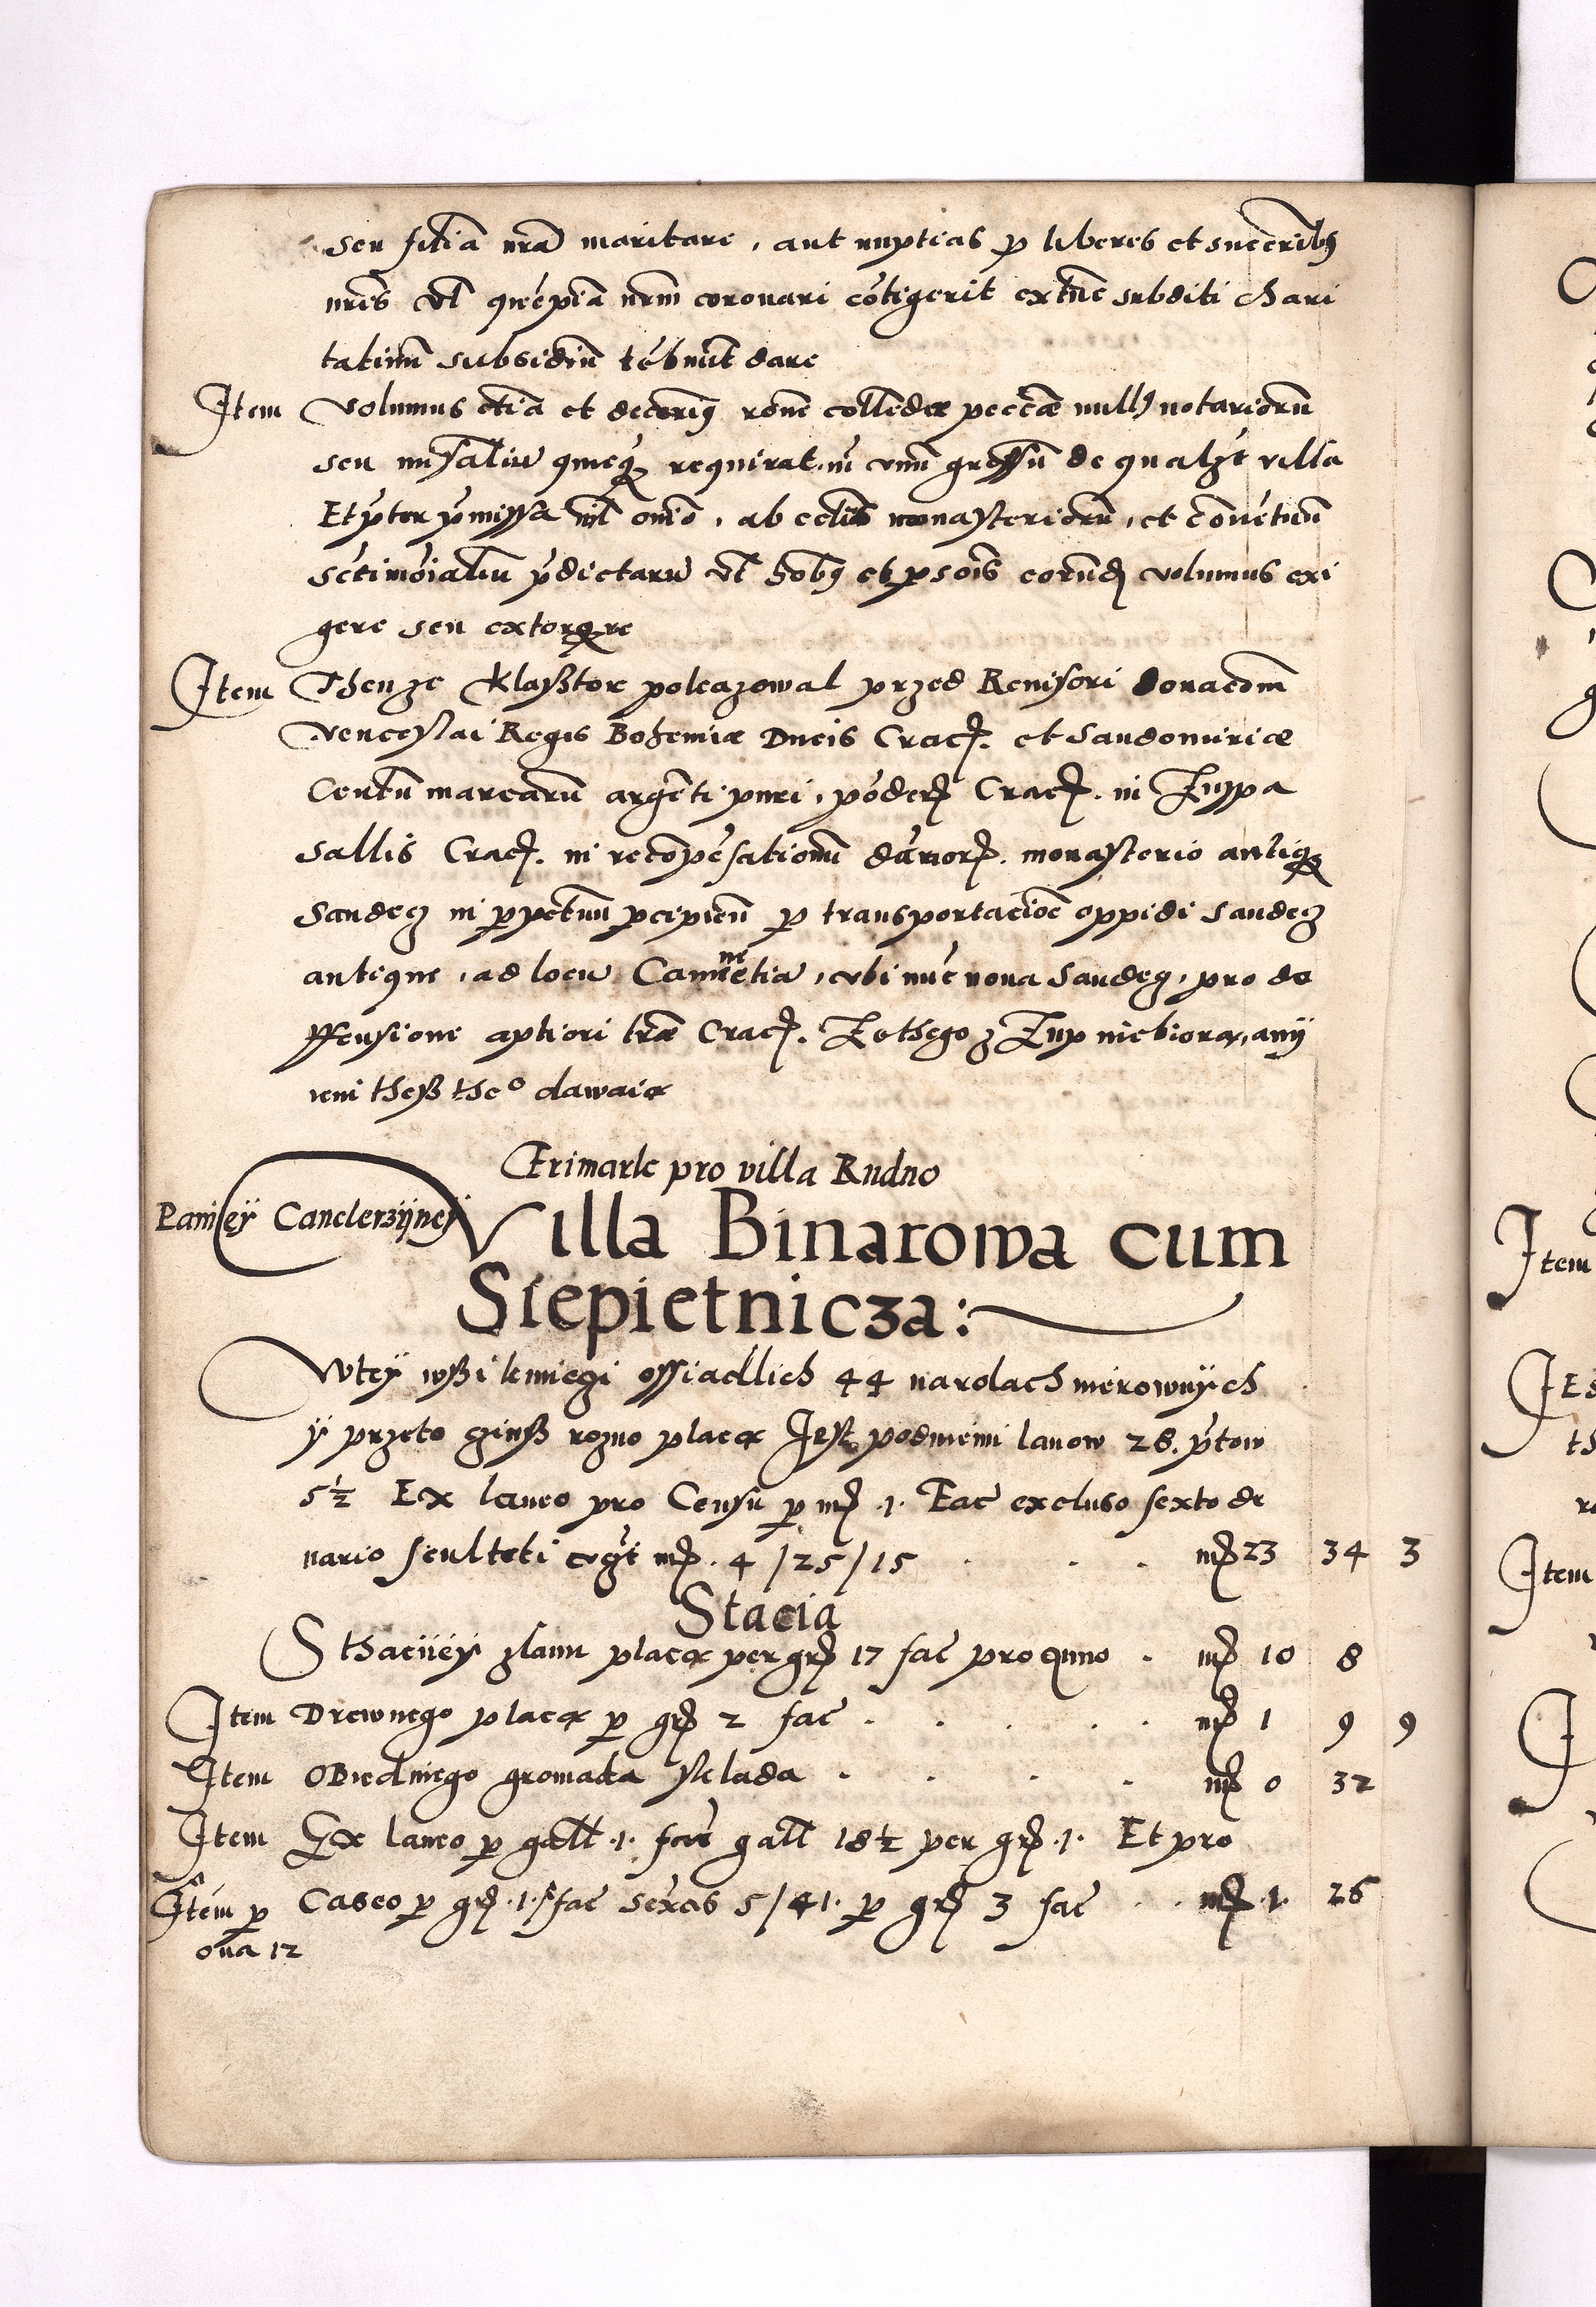 seu filiã nrã maritare, aut nuptias p liberis et succerib9
nris vl quẽpiã nrm coronari cõtigerit extũc subditi chari
tatiuũ subsidiũ tẽbnũt dare
Item Volumus etiã et decerim9 rõne collectæ peccãe null9 notariorũ
seu nũsaliũ quicq3 requirat, nĩ vnũ grossũ de qualz̃t villa
Et p̃ter p̃missa nil oniõ, ab ecliis monasteriorũ, et cõuẽtuũ
sc̃timõialiũ p̃dictarũ vl hoĩb9 et psoĩs eorũd volumus exi
gere seu extorq3re
Item Thenze Klaßtor pokazowal przed Reuisori donacõm
Venceslai Regis Bohemiæ Ducis Crac. et Sandomiriæ
Centũ marcarũ argẽti puri, põder Crac. in Zuppa
Sallis Crac. in recõpẽsationũ dãnor. monasterio antiq3
Sandecz in ppetuũ pcipieñ p transportaciõe oppidi Sandecz
antique, ad locũ Camenetia, vbi nũc noua Sandecz, pro de
ffensione aptiori træ Crac. Zethego z Zup niebiorą, anÿ
iem theß the° dawaią
Frimark pro villa Rudno
Paniey Canclerzÿneÿ
Villa Binarowa cum
Siepietnicza:
Wteÿ wßi kmiezi ossiadlich 44 narolach nierownÿch
ÿ przeto czinß rozno placą Jest podniemi lanow 28. p̃tow
5½ Ex laneo pro Censu p m̃ .1. Fac excluso sexto de
nario sculteti cog̃t m̃. 4 / 25 / 15 . . . m̃ 23 34 3
Stacia
Sthacÿeÿ zlanu placą per gr 17 fac pro quno . m̃ 10 8
Item Drewnego placą p gr 2 fac . . . . . m̃ 1 9 9
Item OBiedniego gromada sklada . . . . m̃ 0 32
Item Ex laneo p gall .1. fac̃ gall 18½ per gr .1. Et pro
Caseo p gr .1. fac sexas 5 / 41. p gr 3 fac . . m̃ .1. 26
Item p
oua 12